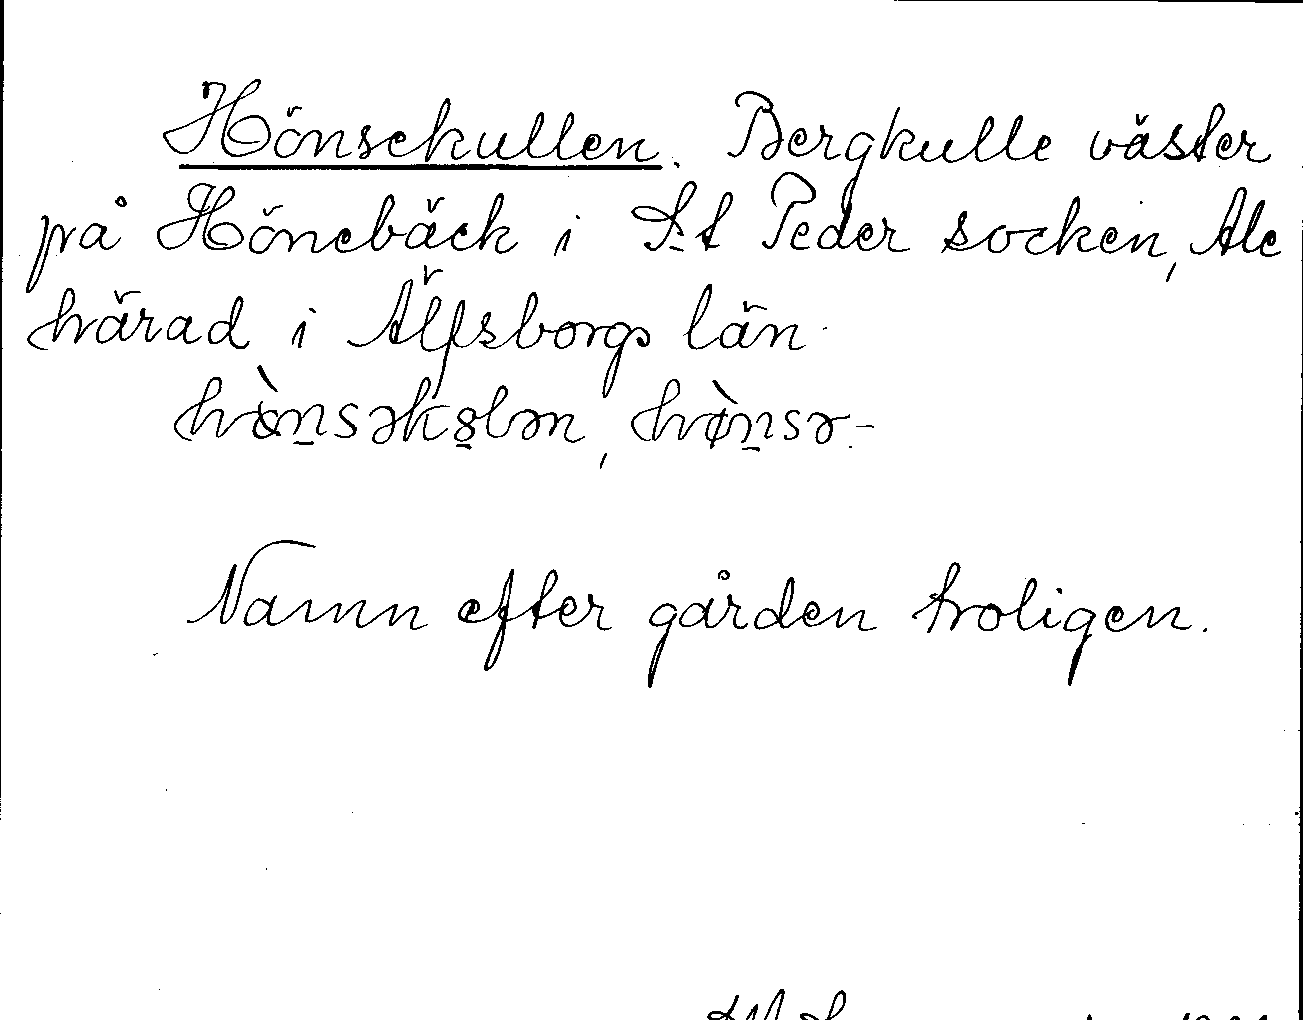 Hönsekullen. Bergkulle väster
på Hönebäck i S:t Peder socken, Ale
härad i Älfsborgs län.
Namn efter gården troligen.